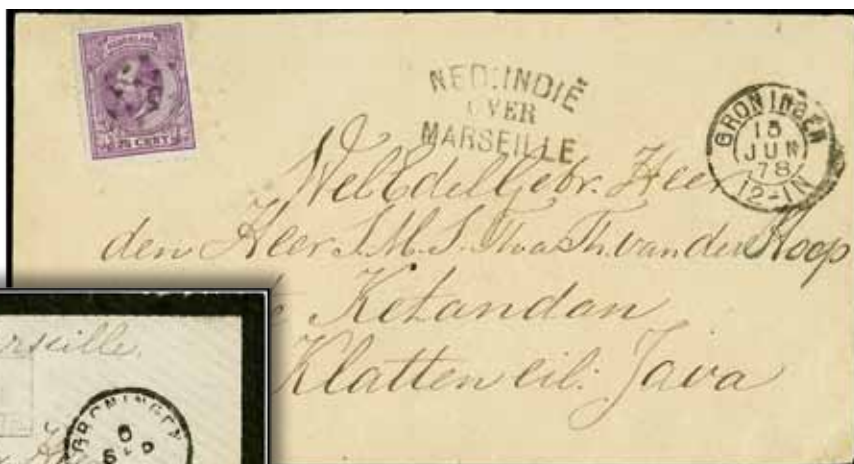 NEDERLAND
25 CENT
NED: INDIË
OVER
MARSEILLE
GRONINGEN
15
JUN
78
12-1N
WelEdelGebr. Heer
den Heer J.M.S. van der Hoop
Ketandan
Klatten eil: Java
Marseille.
GRONINGEN
SEP
Heer